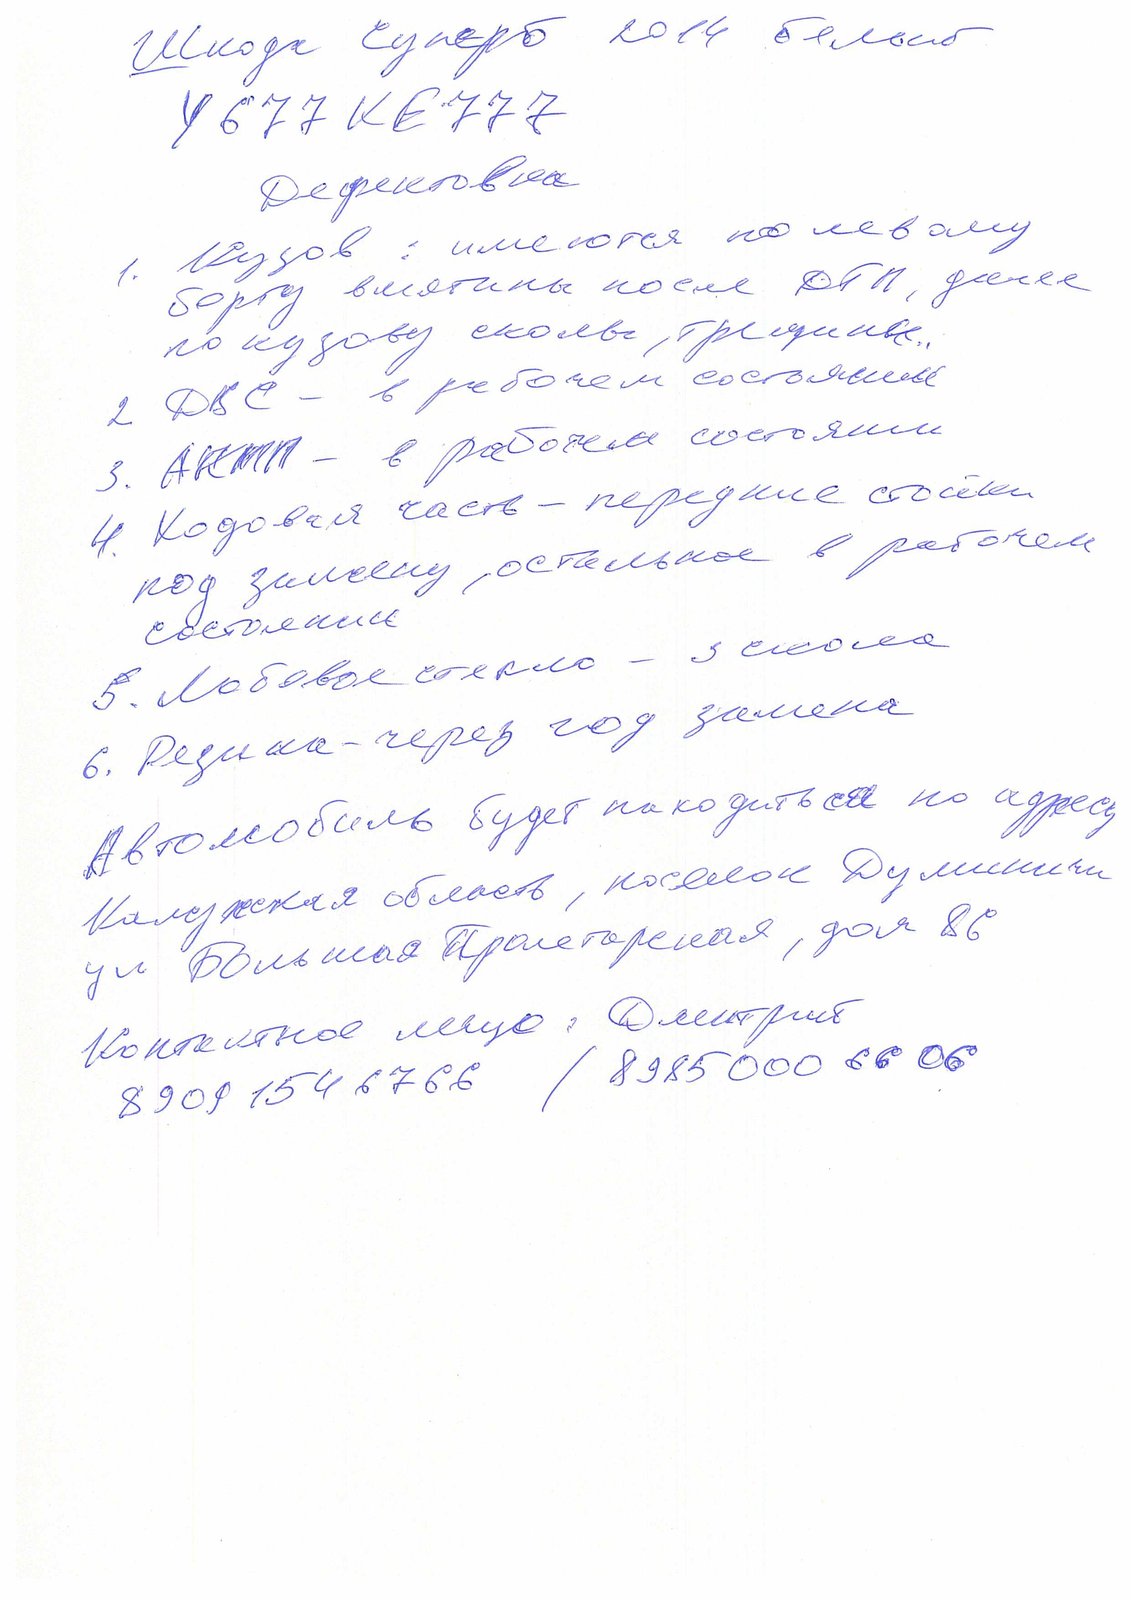 Шкода Суперб 2014 белый
У677КЕ777
Дефектовка
1. Кузов : имеются по левому
борту вмятины после ДТП, далее
по кузову сколы, трещины..
2 ДВС – в рабочем состоянии
3. АКПП – в рабочем состоянии
4. Ходовая часть – передние стойки
под замену, остальное в рабочем
состоянии
5. Лобовое стекло – 3 скола
6. Резина – через год замена
Автомобиль будет находиться по адресу
Калужская область, поселок Думиничи
ул Большая Пролетарская, дом 86
Контактное лицо : Дмитрий
8909 154 6766 / 8985 000 66 06